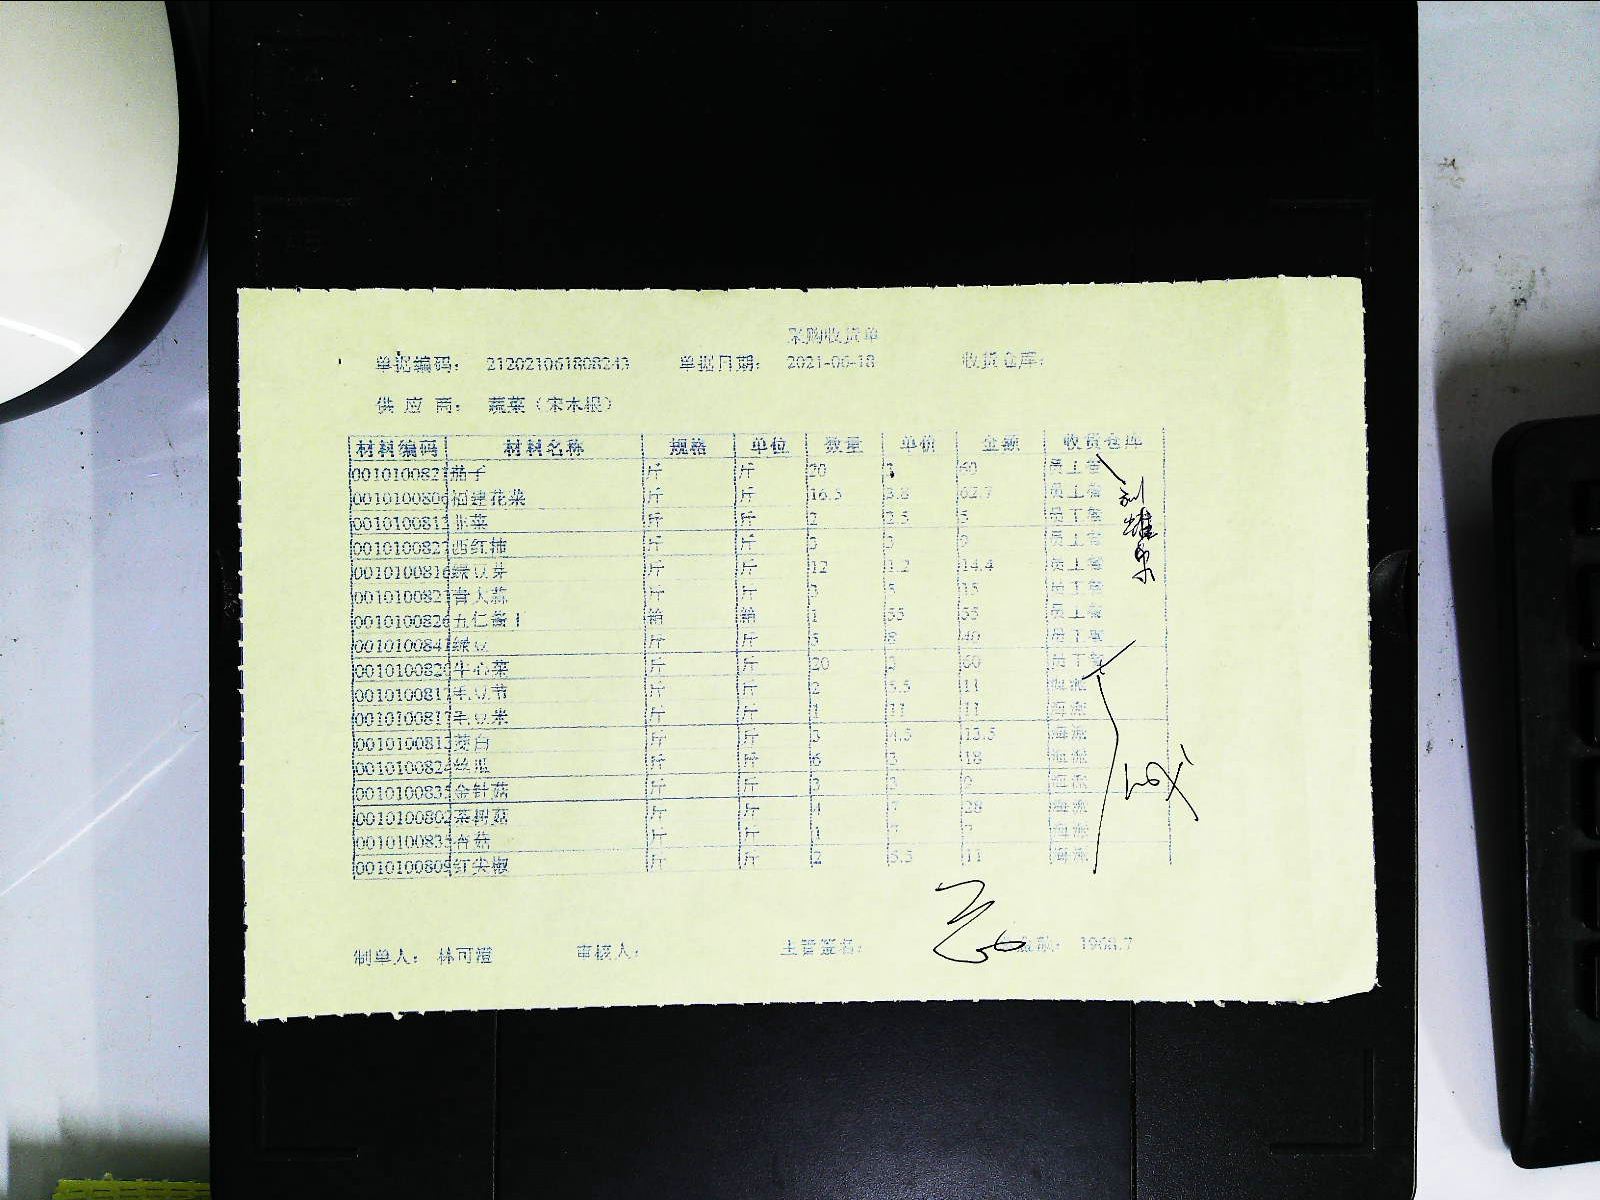 采购收货单
单据编码： 212021061808243 单据日期： 2021-06-18 收货仓库：
供 应 商： 蔬菜（宋本根）
材料编码 材料名称 规格 单位 数量 单价 金额 收货仓库
0010100821 茄子 斤 斤 20 3 60 员工餐
0010100806 福建花菜 斤 斤 16.5 3.8 62.7 员工餐
0010100813 韭菜 斤 斤 2 2.5 5 员工餐
0010100827 西红柿 斤 斤 3 3 9 员工餐
0010100816 绿豆芽 斤 斤 12 1.2 14.4 员工餐
0010100821 青大蒜 斤 斤 3 5 15 员工餐
0010100826 箱 箱 1 55 55 员工餐
001010084 绿豆 斤 斤 5 8 40 员工餐
0010100820 牛心菜 斤 斤 20 3 60 员工餐
0010100817 毛豆节 斤 斤 2 5.5 11 海派
0010100817 毛豆米 斤 斤 1 11 11 海派
0010100813 茭白 斤 斤 3 4.5 13.5 海派
001010082 丝瓜 斤 斤 6 3 18 海派
0010100835 金针菇 斤 斤 3 3 9 海派
0010100802 茶树菇 斤 斤 4 7 28 海派
0010100835 香菇 斤 斤 1 7 7 海派
0010100809 红尖椒 斤 斤 2 5.5 11 海派
制单人： 林可澄 审核人： 主管签名： 1968.7